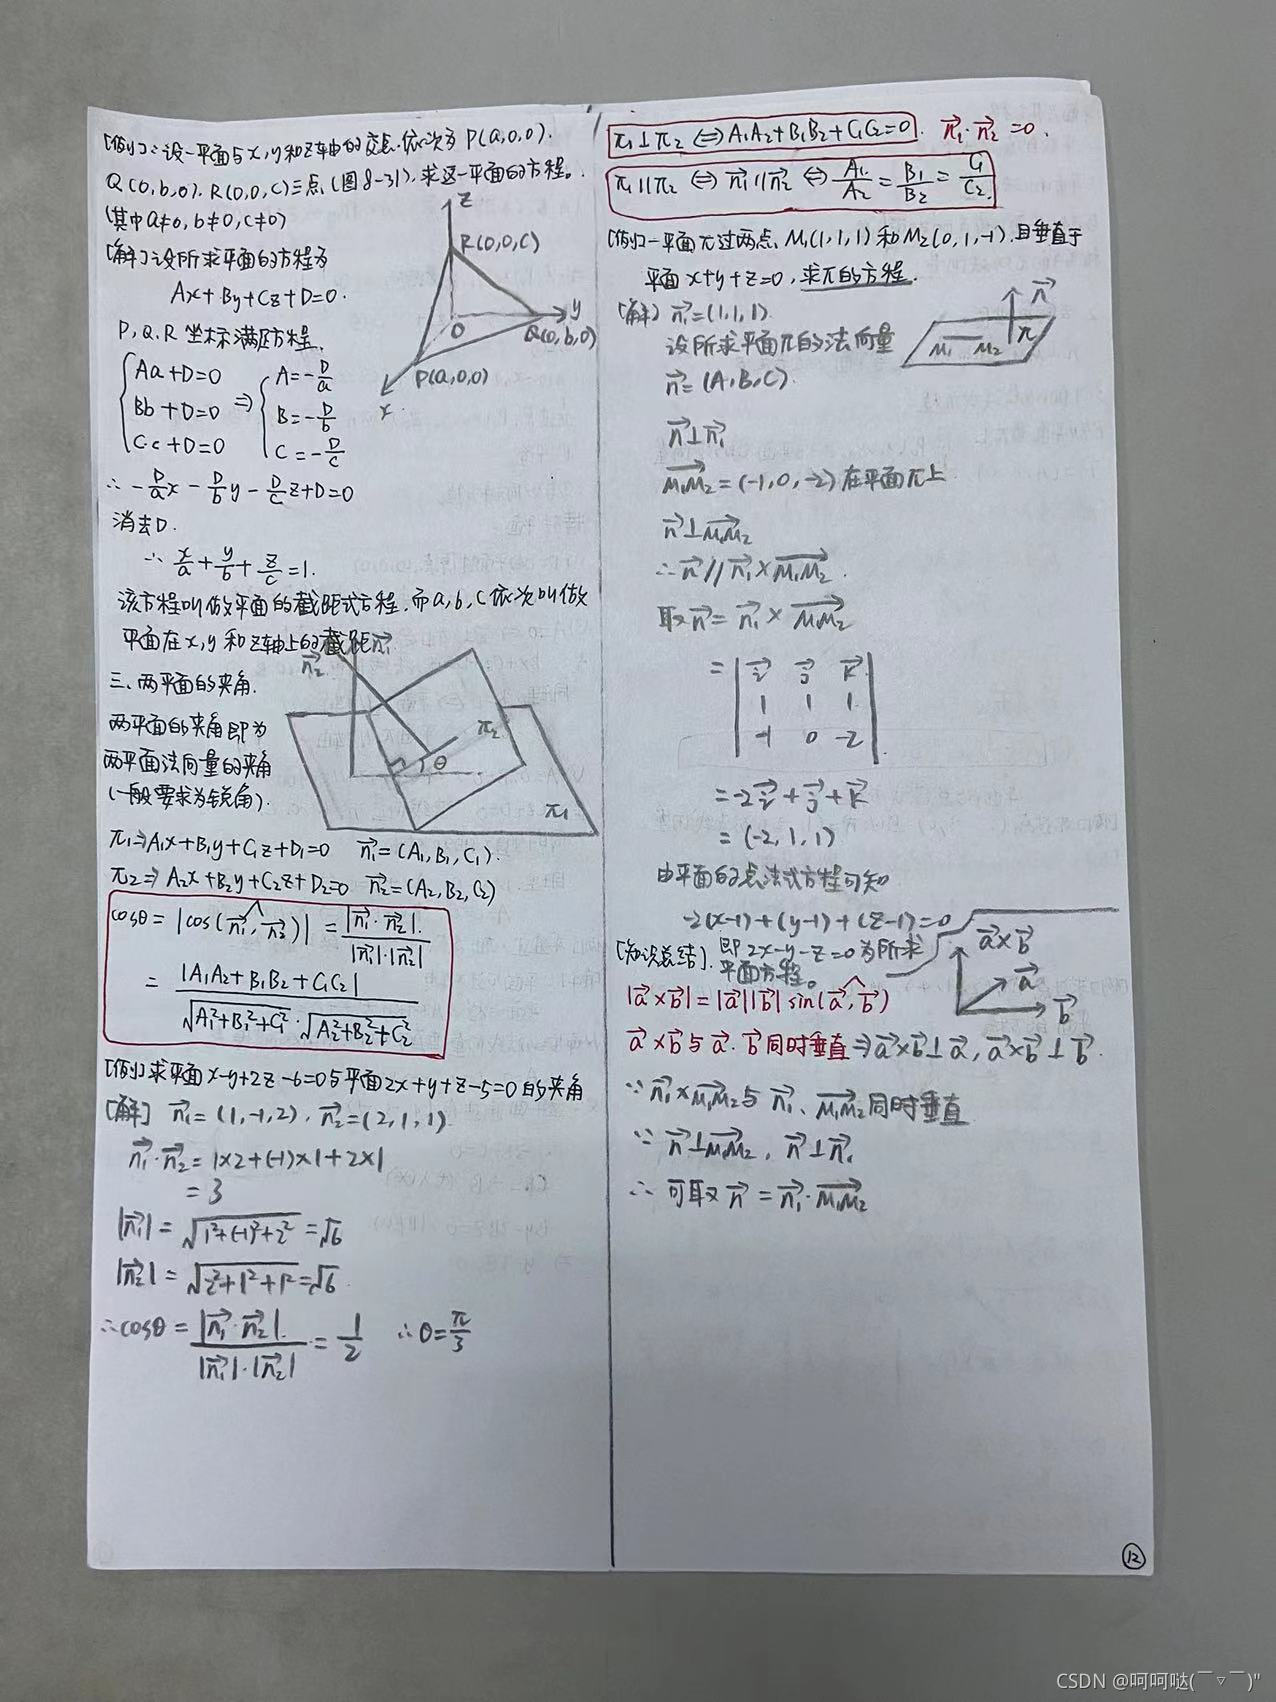 [例]:设一平面与x,y和z轴的交点依次为P(a,0,0).
Q(0,b,0).R(0,0,c)三点(图8-31),求这一平面的方程。
(其中a≠0,b≠0,c≠0)
[解]:设所求平面的方程为
Ax+By+Cz+D=0.
P,Q,R坐标满足方程.
{Aa+D=0 Bb+D=0 C·c+D=0 ⇒ {A=-D/a B=-D/b C=-D/c
∴ -D/a x - D/b y - D/c z+D=0
消去D.
∴ x/a + y/b + z/c =1.
z
R(0,0,c)
y
O
Q(0,b,0)
P(a,0,0)
x
该方程叫做平面的截距式方程,而a,b,c依次叫做
平面在x,y和z轴上的截距.
三、两平面的夹角.
两平面的夹角即为
两平面法向量的夹角
(一般要求为锐角).
n₁→
n₂→
π₂
θ
π₁
π₁⇒A₁x+B₁y+C₁z+D₁=0 n₁→=(A₁,B₁,C₁).
π₂⇒A₂x+B₂y+C₂z+D₂=0 n₂→=(A₂,B₂,C₂)
cosθ=|cos(n₁→,^n₂→)| = |n₁→·n₂→| / |n₁→|·|n₂→|
= |A₁A₂+B₁B₂+C₁C₂| / √(A₁²+B₁²+C₁²)·√(A₂²+B₂²+C₂²)
[例]求平面x-y+2z-6=0与平面2x+y+z-5=0的夹角
[解] n₁→=(1,-1,2), n₂→=(2,1,1)
n₁→·n₂→=1×2+(-1)×1+2×1
=3
|n₁→|=√(1²+(-1)²+2²)=√6
|n₂→|=√(2²+1²+1²)=√6
∴cosθ=|n₁→·n₂→| / |n₁→|·|n₂→| = 1/2 ∴θ=π/3
π₁⊥π₂⇔A₁A₂+B₁B₂+C₁C₂=0. n₁→·n₂→=0.
π₁∥π₂⇔n₁→∥n₂→⇔A₁/A₂=B₁/B₂=C₁/C₂
[例]一平面π过两点M₁(1,1,1)和M₂(0,1,-1).且垂直于
平面x+y+z=0,求π的方程.
[解] n₁→=(1,1,1).
设所求平面π的法向量
n→=(A,B,C).
n→
M₁ M₂ π
n→⊥n₁→
M₁M₂→=(-1,0,-2)在平面π上
n→⊥M₁M₂→
∴n→//n₁→×M₁M₂→.
取n→=n₁→×M₁M₂→
= | i→ j→ k→ |
| 1 1 1 |
| -1 0 -2 |
=-2i→+j→+k→
=(-2,1,1)
由平面的点法式方程可知
-2(x-1)+(y-1)+(z-1)=0
即2x-y-z=0为所求
平面方程。
[知识总结].
a→×b→
a→
b→
|a→×b→|=|a→||b→|sin(a→,^b→)
a→×b→与a→.b→同时垂直⇒a→×b→⊥a→,a→×b→⊥b→.
∵n₁→×M₁M₂→与n₁→、M₁M₂→同时垂直
∵n→⊥M₁M₂→,n→⊥n₁→
∴可取n→=n₁→·M₁M₂→
12
CSDN @呵呵哒(￣▽￣)"